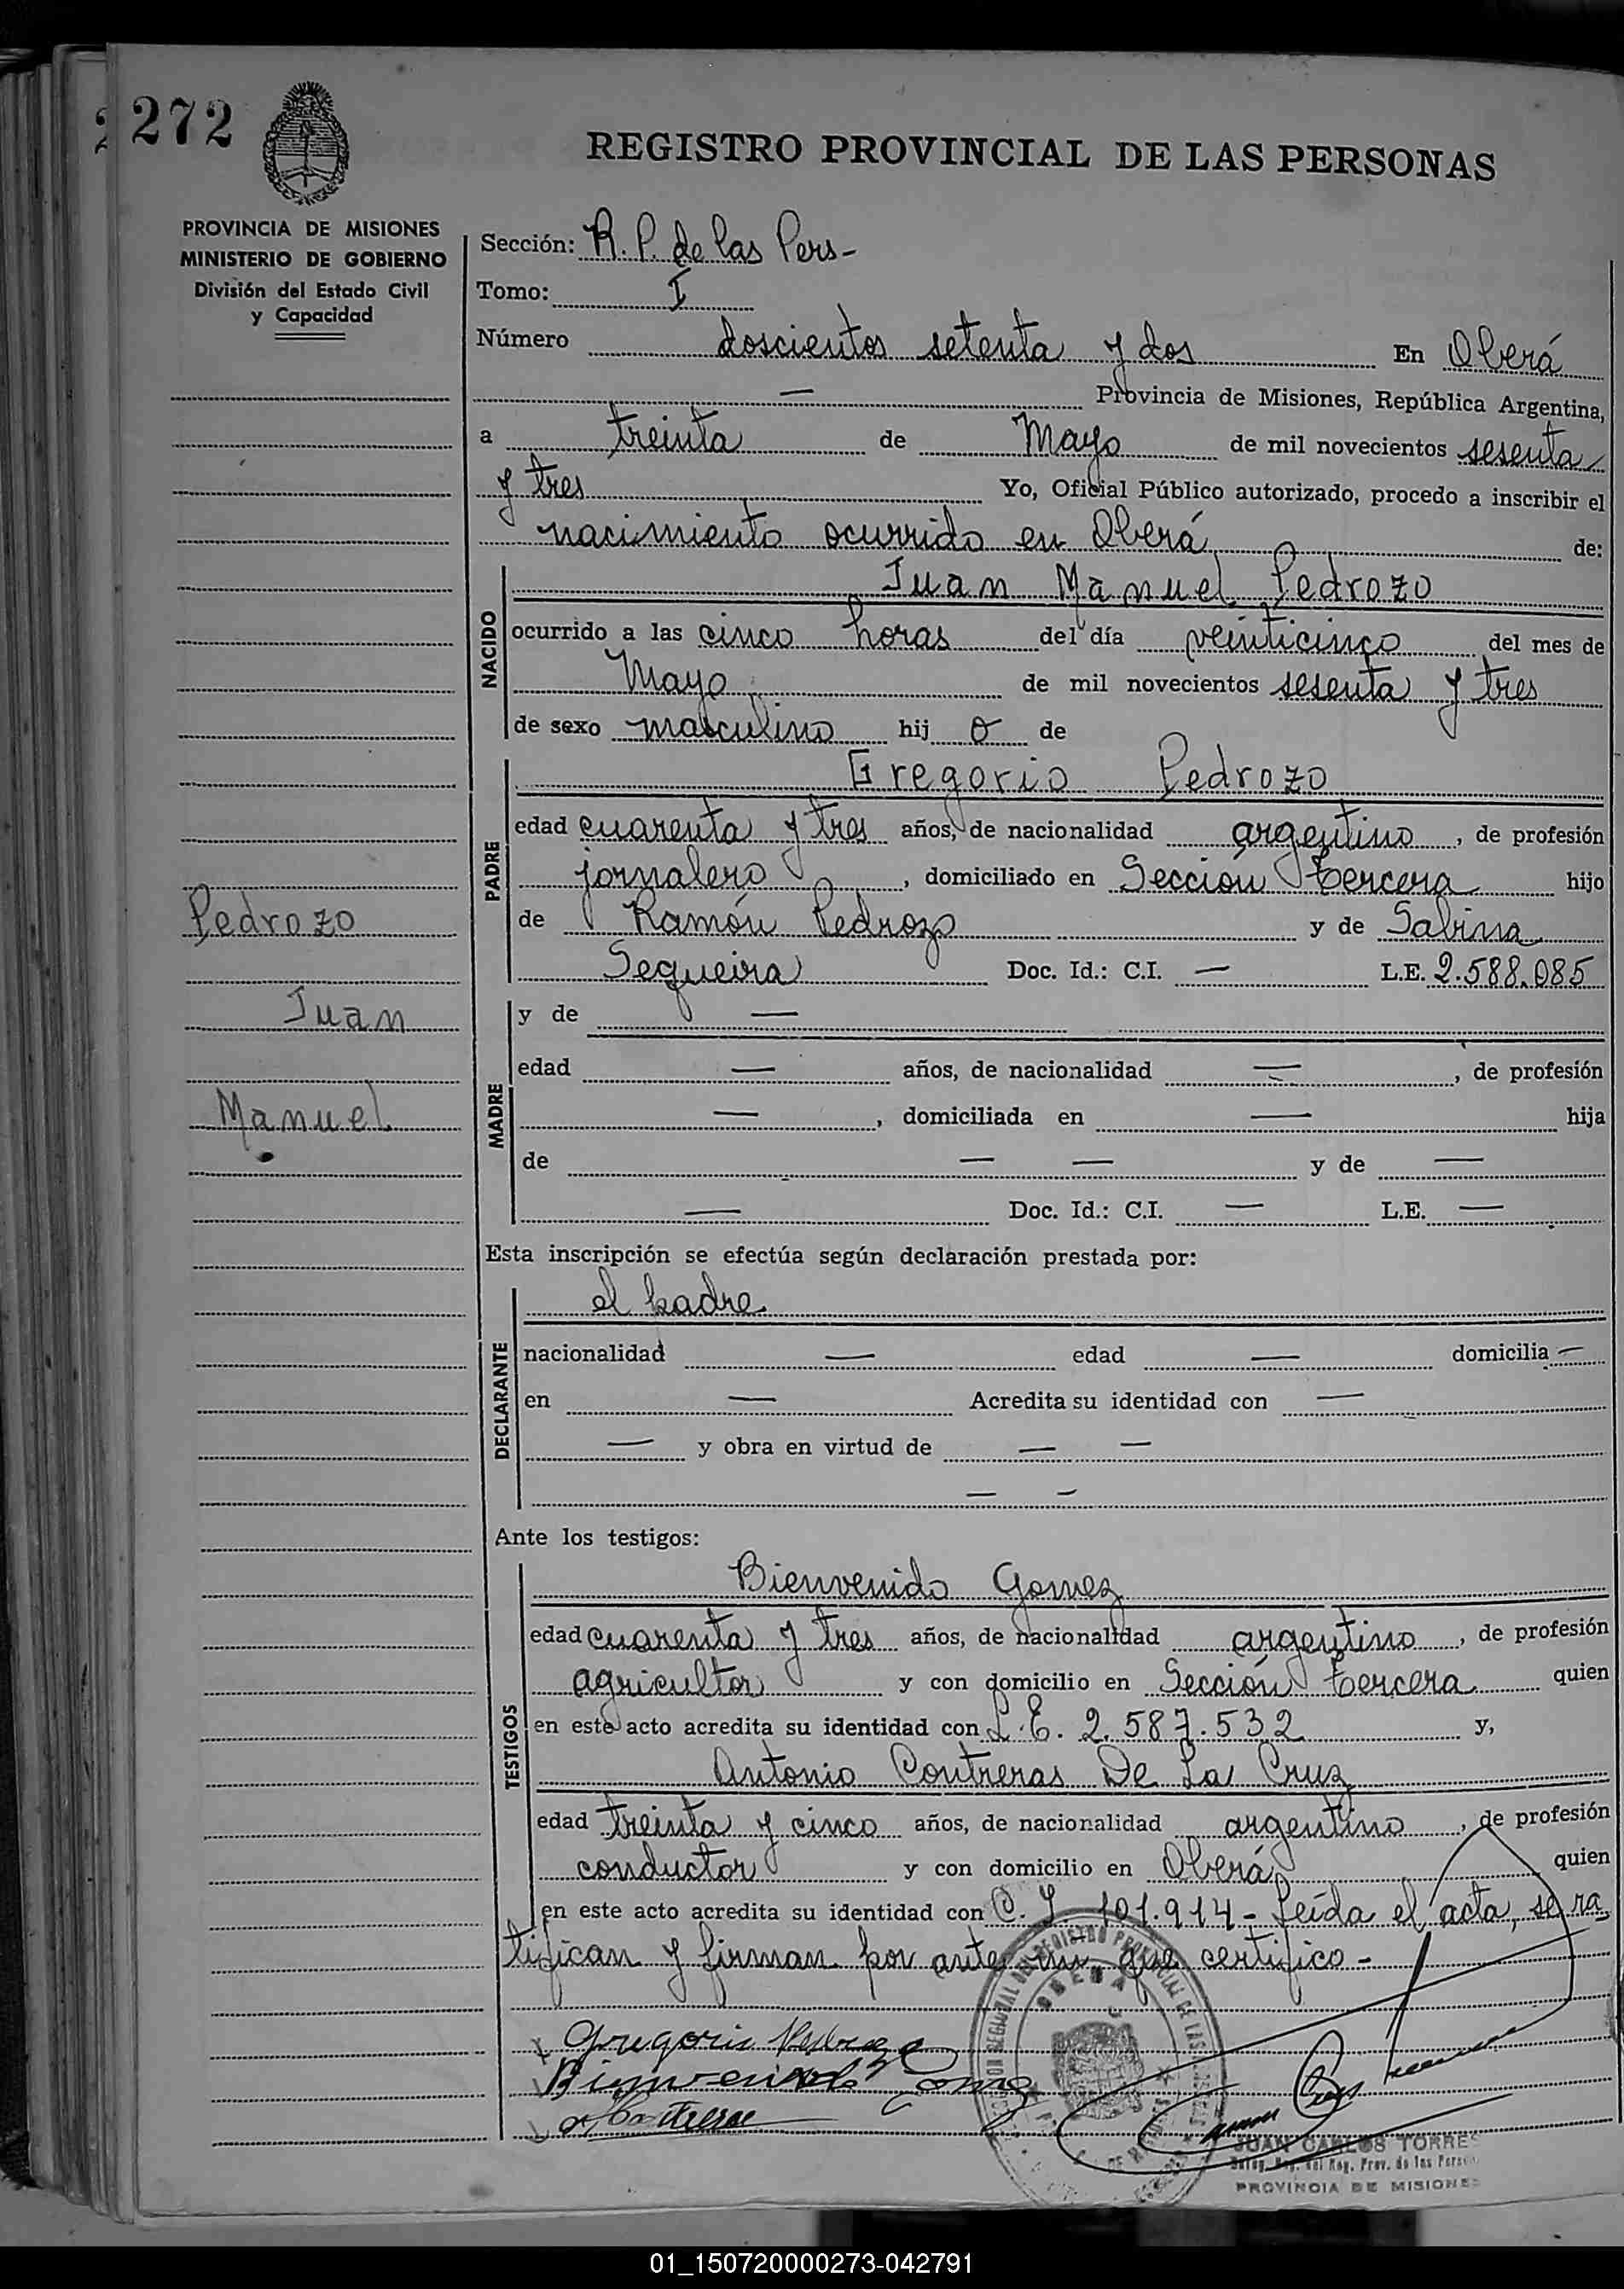 272
REGISTRO PROVINCIAL DE LAS PERSONAS
PROVINCIA DE MISIONES
MINISTERIO DE GOBIERNO
División del Estado Civil
y Capacidad
Sección: R. P. de las Pers-
Tomo: I
Número doscientos setenta y dos En Oberá
— Provincia de Misiones, República Argentina,
a treinta de Mayo de mil novecientos sesenta
y tres Yo, Oficial Público autorizado, procedo a inscribir el
nacimiento ocurrido en Oberá de:
NACIDO
Juan Manuel Pedrozo
ocurrido a las cinco horas del día veinticinco del mes de
Mayo de mil novecientos sesenta y tres
de sexo masculino hij o de
PADRE
Gregorio Pedrozo
edad cuarenta y tres años, de nacionalidad argentino, de profesión
jornalero, domiciliado en Sección tercera hijo
de Ramón Pedrozo y de Sabina
Sequeira Doc. Id.: C.I. — L.E. 2.588.085
Pedrozo
Juan
Manuel
MADRE
y de —
edad — años, de nacionalidad —, de profesión
—, domiciliada en — hija
de — — y de —
— Doc. Id.: C.I. — L.E. —
Esta inscripción se efectúa según declaración prestada por:
DECLARANTE
el padre
nacionalidad — edad — domicilia —
en — Acredita su identidad con —
— y obra en virtud de — —
— —
Ante los testigos:
TESTIGOS
Bienvenido Gomez
edad cuarenta y tres años, de nacionalidad argentino, de profesión
agricultor y con domicilio en Sección tercera quien
en este acto acredita su identidad con L.E. 2.587.532 y,
Antonio Contreras De La Cruz
edad treinta y cinco años, de nacionalidad argentino, de profesión
conductor y con domicilio en Oberá quien
en este acto acredita su identidad con C. I. 101.914- Leída el acta, se ra
tifican y firman por ante mi que certifico-
Gregorio Pedrozo
Bienvenido Gomez
A Contreras
OBERA
JUAN CARLOS TORRES
Deleg. Reg. del Reg. Prov. de las Person
PROVINCIA DE MISIONES
01_150720000273-042791